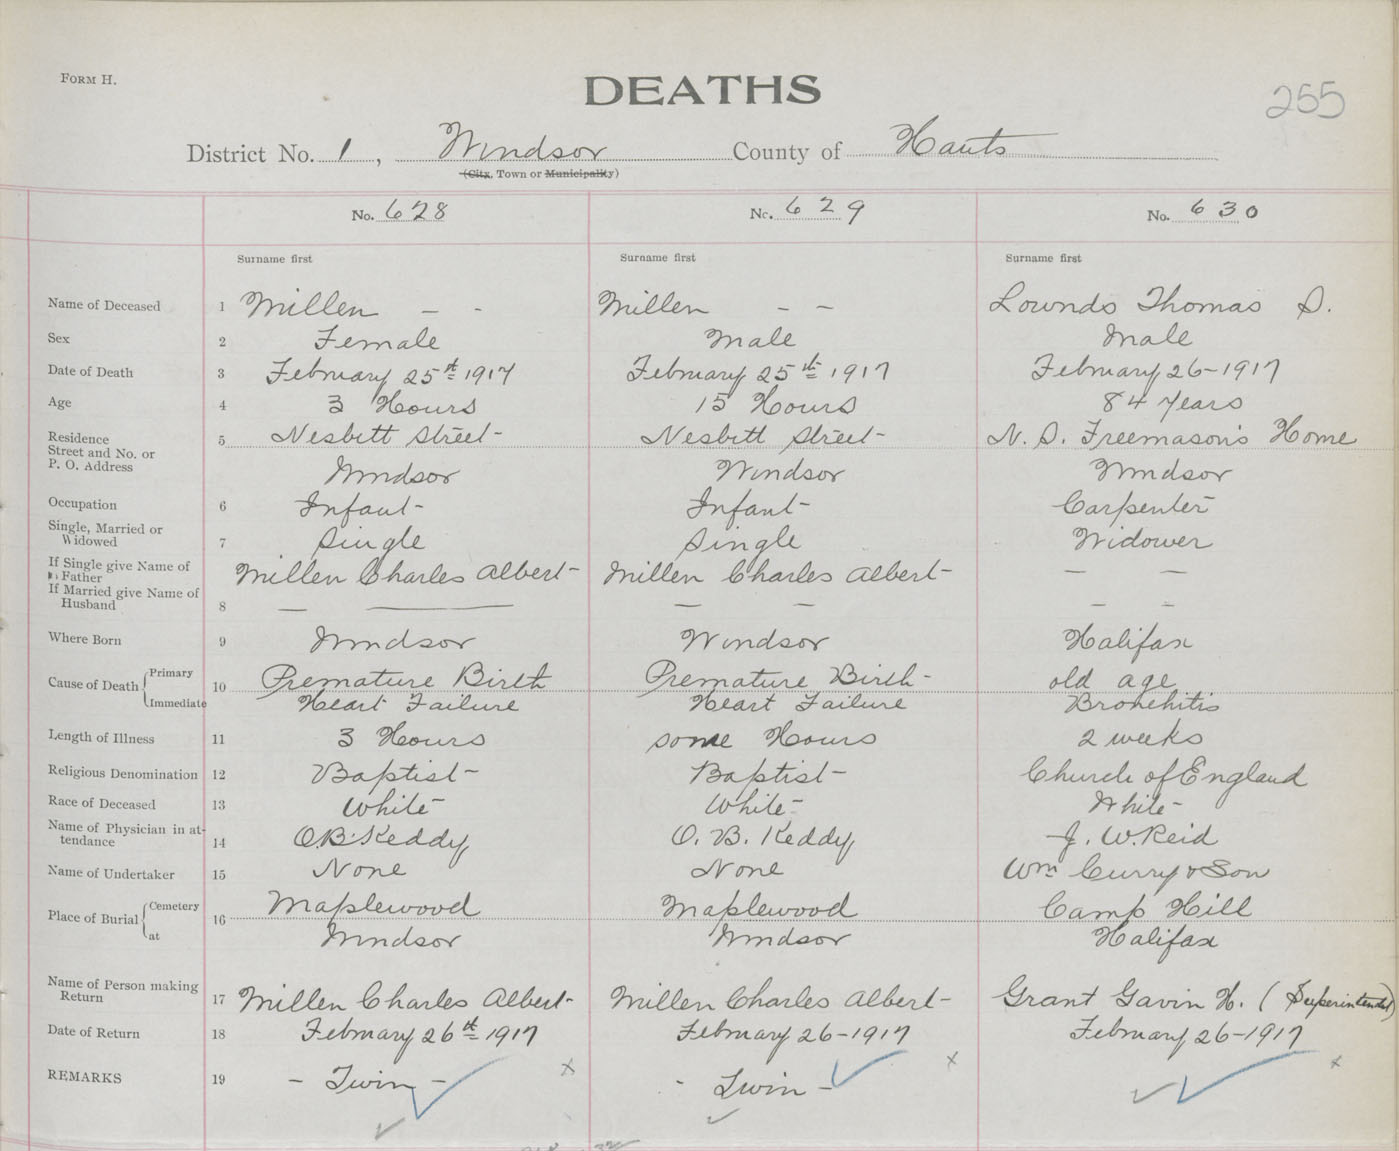 FORM H.
DEATHS
255
District No. 1, Windsor County of Hants
(City, Town or Municipality)
No. 628 No. 629 No. 630
Surname first Surname first Surname first
Name of Deceased 1 Millen - - Millen - - Lownds Thomas S.
Sex 2 Female Male Male
Date of Death 3 February 25th 1917 February 25th 1917 February 26-1917
Age 4 3 Hours 15 Hours 84 years
Residence
Street and No. or 5 Nesbitt Street- Nesbitt Street- N. S. Freemason's Home
P. O. Address Windsor Windsor Windsor
Occupation 6 Infant- Infant- Carpenter
Single, Married or
Widowed 7 Single Single Widower
If Single give Name of
Father Millen Charles Albert- Millen Charles Albert- — —
If Married give Name of
Husband 8 — — — — — —
Where Born 9 Windsor Windsor Halifax
Cause of Death Primary 10 Premature Birth Premature Birth- old age
Immediate Heart Failure Heart Failure Bronchitis
Length of Illness 11 3 Hours some Hours 2 weeks
Religious Denomination 12 Baptist- Baptist- Church of England
Race of Deceased 13 White- White- White-
Name of Physician in at-
tendance 14 O.B. Keddy O. B. Keddy J. W. Reid
Name of Undertaker 15 None None Wm Curry & Son
Place of Burial Cemetery 16 Maplewood Maplewood Camp Hill
at Windsor Windsor Halifax
Name of Person making
Return 17 Millen Charles Albert- Millen Charles Albert- Grant Gavin H. (Superintendent)
Date of Return 18 February 26th 1917 February 26-1917 February 26-1917
REMARKS 19 - Twin - x - Twin - x x